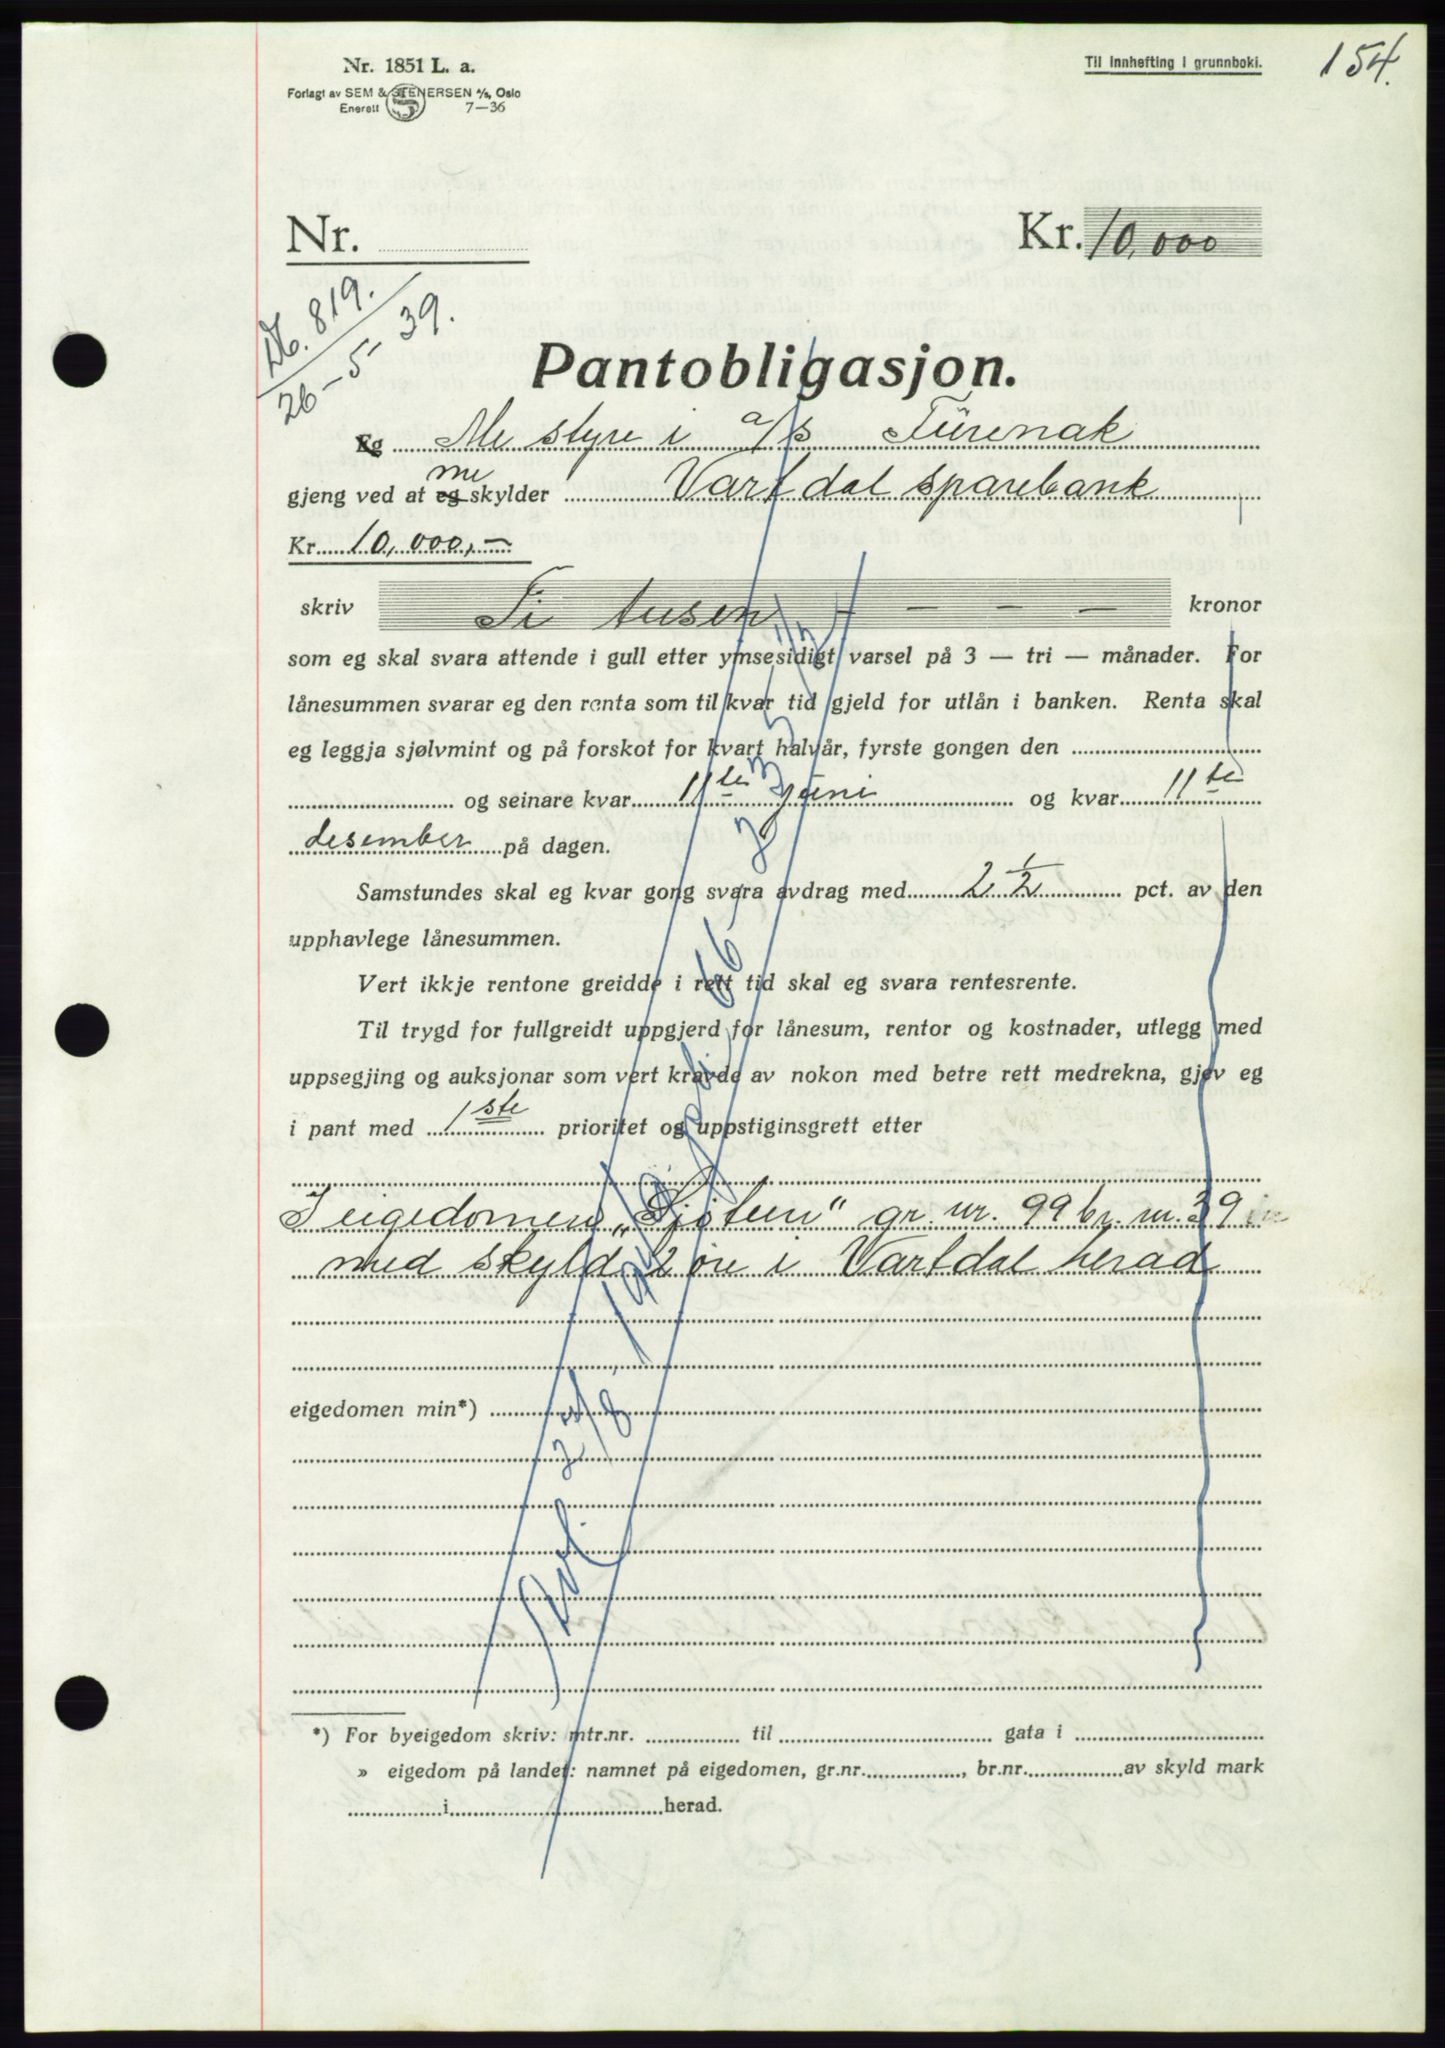 154.
Nr. 1851 L. a.
Til innhefting i grunnboki.
Forlagt av SEM & STENERSEN A/s, Oslo
Enerett S 7—36
Nr.
Kr. 10,000
Db. 819.
26-5-39.
Pantobligasjon.
Eg Me styre i a/s Fürenak
me
gjeng ved at eg skylder Vartdal sparebank
Kr. 10,000,-
skriv Ti tusen - - - - kronor
som eg skal svara attende i gull etter ymsesidigt varsel på 3 — tri — månader. For
lånesummen svarar eg den renta som til kvar tid gjeld for utlån i banken. Renta skal
eg leggja sjølvmint og på forskot for kvart halvår, fyrste gongen den
og seinare kvar 11te juni og kvar 11te
desember på dagen.
Samstundes skal eg kvar gong svara avdrag med 2 1/2 pct. av den
upphavlege lånesummen.
Vert ikkje rentone greidde i rett tid skal eg svara rentesrente.
Til trygd for fullgreidt uppgjerd for lånesum, rentor og kostnader, utlegg med
uppsegjing og auksjonar som vert kravde av nokon med betre rett medrekna, gjev eg
i pant med 1ste prioritet og uppstiginsgrett etter
I eigedomen „Sjøtun" gr. nr. 99 br. nr. 39
med skyld 2 øre i Vartdal herad
eigedomen min*)
*) For byeigedom skriv: mtr.nr. til gata i
» eigedom på landet: namnet på eigedomen, gr.nr. , br.nr. av skyld mark
i herad.